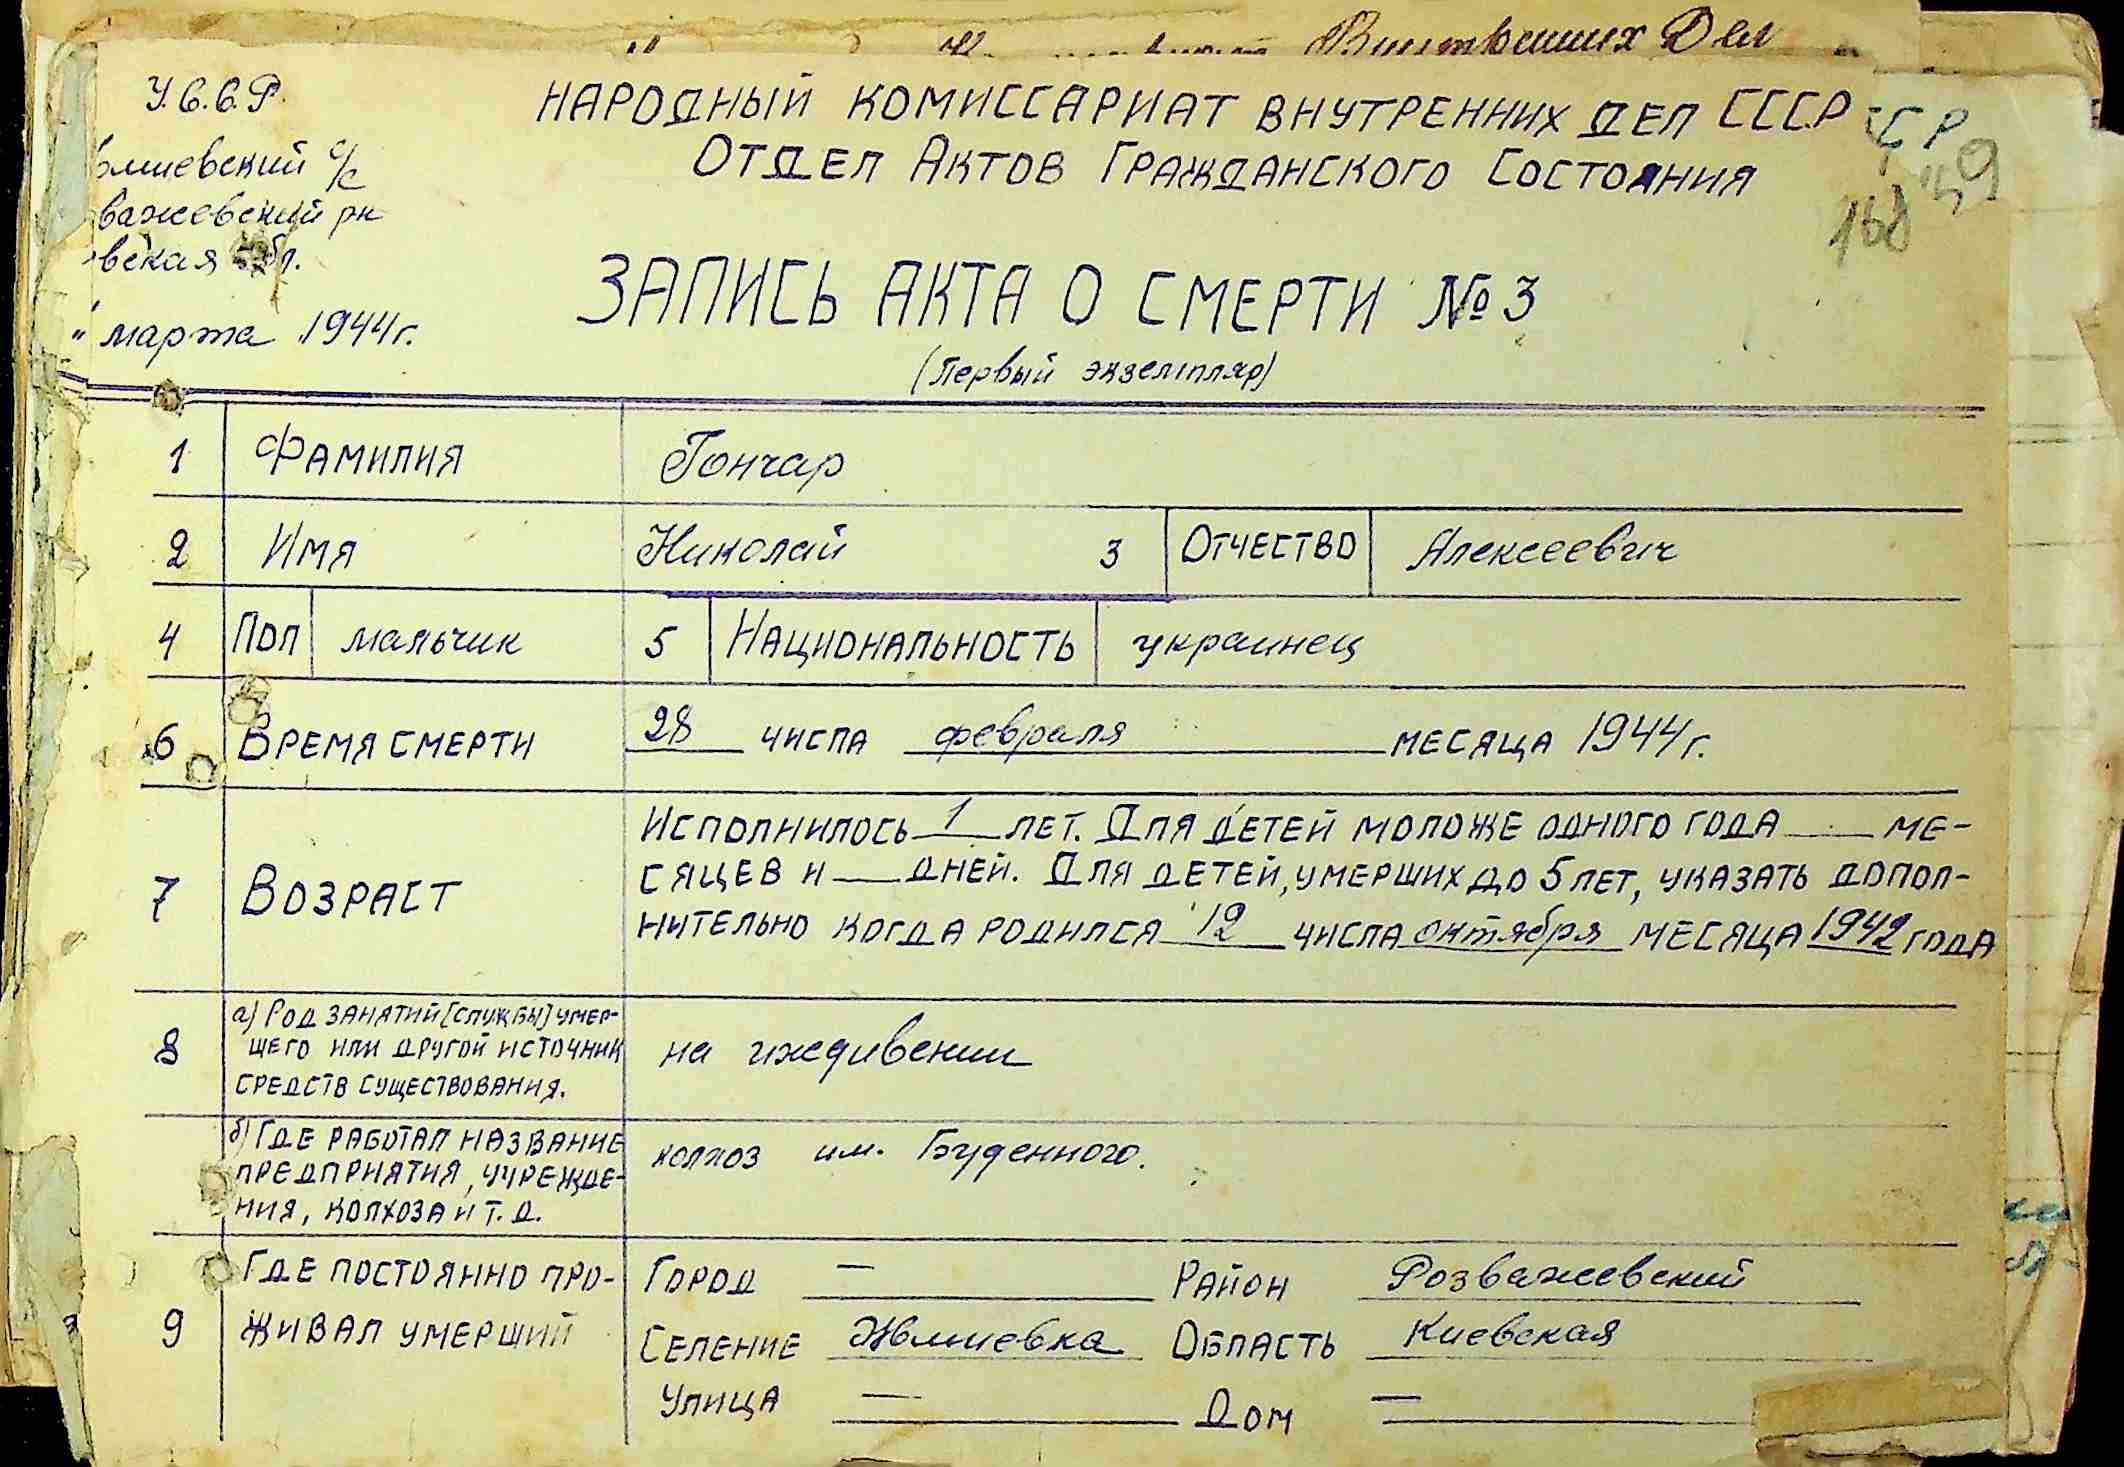 У.С.С.Р.
НАРОДНЫЙ КОМИССАРИАТ ВНУТРЕННИХ ДЕЛ СССР
ОТДЕЛ АКТОВ ГРАЖДАНСКОГО СОСТОЯНИЯ
с/с
важевский рн
вская обл.
марта 1944 г.
ЗАПИСЬ АКТА О СМЕРТИ № 3
(Первый экземпляр)
1 ФАМИЛИЯ Гончар
2 ИМЯ Николай 3 ОТЧЕСТВО Алексеевич
4 ПОЛ мальчик 5 НАЦИОНАЛЬНОСТЬ украинец
6 ВРЕМЯ СМЕРТИ 28 ЧИСЛА февраля МЕСЯЦА 1944 г.
7 ВОЗРАСТ
ИСПОЛНИЛОСЬ 1 ЛЕТ. ДЛЯ ДЕТЕЙ МОЛОЖЕ ОДНОГО ГОДА ___ МЕ-
СЯЦЕВ И ___ ДНЕЙ. ДЛЯ ДЕТЕЙ, УМЕРШИХ ДО 5 ЛЕТ, УКАЗАТЬ ДОПОЛ-
НИТЕЛЬНО КОГДА РОДИЛСЯ 12 ЧИСЛА октября МЕСЯЦА 1942 ГОДА
8 а) РОД ЗАНЯТИЙ [СЛУЖБЫ] УМЕР-
ШЕГО ИЛИ ДРУГОЙ ИСТОЧНИК
СРЕДСТВ СУЩЕСТВОВАНИЯ.
на иждивении
б) ГДЕ РАБОТАЛ НАЗВАНИЕ
ПРЕДПРИЯТИЯ, УЧРЕЖДЕ-
НИЯ, КОЛХОЗА И Т. Д.
колхоз им. Буденного.
9 ГДЕ ПОСТОЯННО ПРО-
ЖИВАЛ УМЕРШИЙ
ГОРОД — РАЙОН Розважевский
СЕЛЕНИЕ Жмиевка ОБЛАСТЬ Киевская
УЛИЦА — ДОМ —